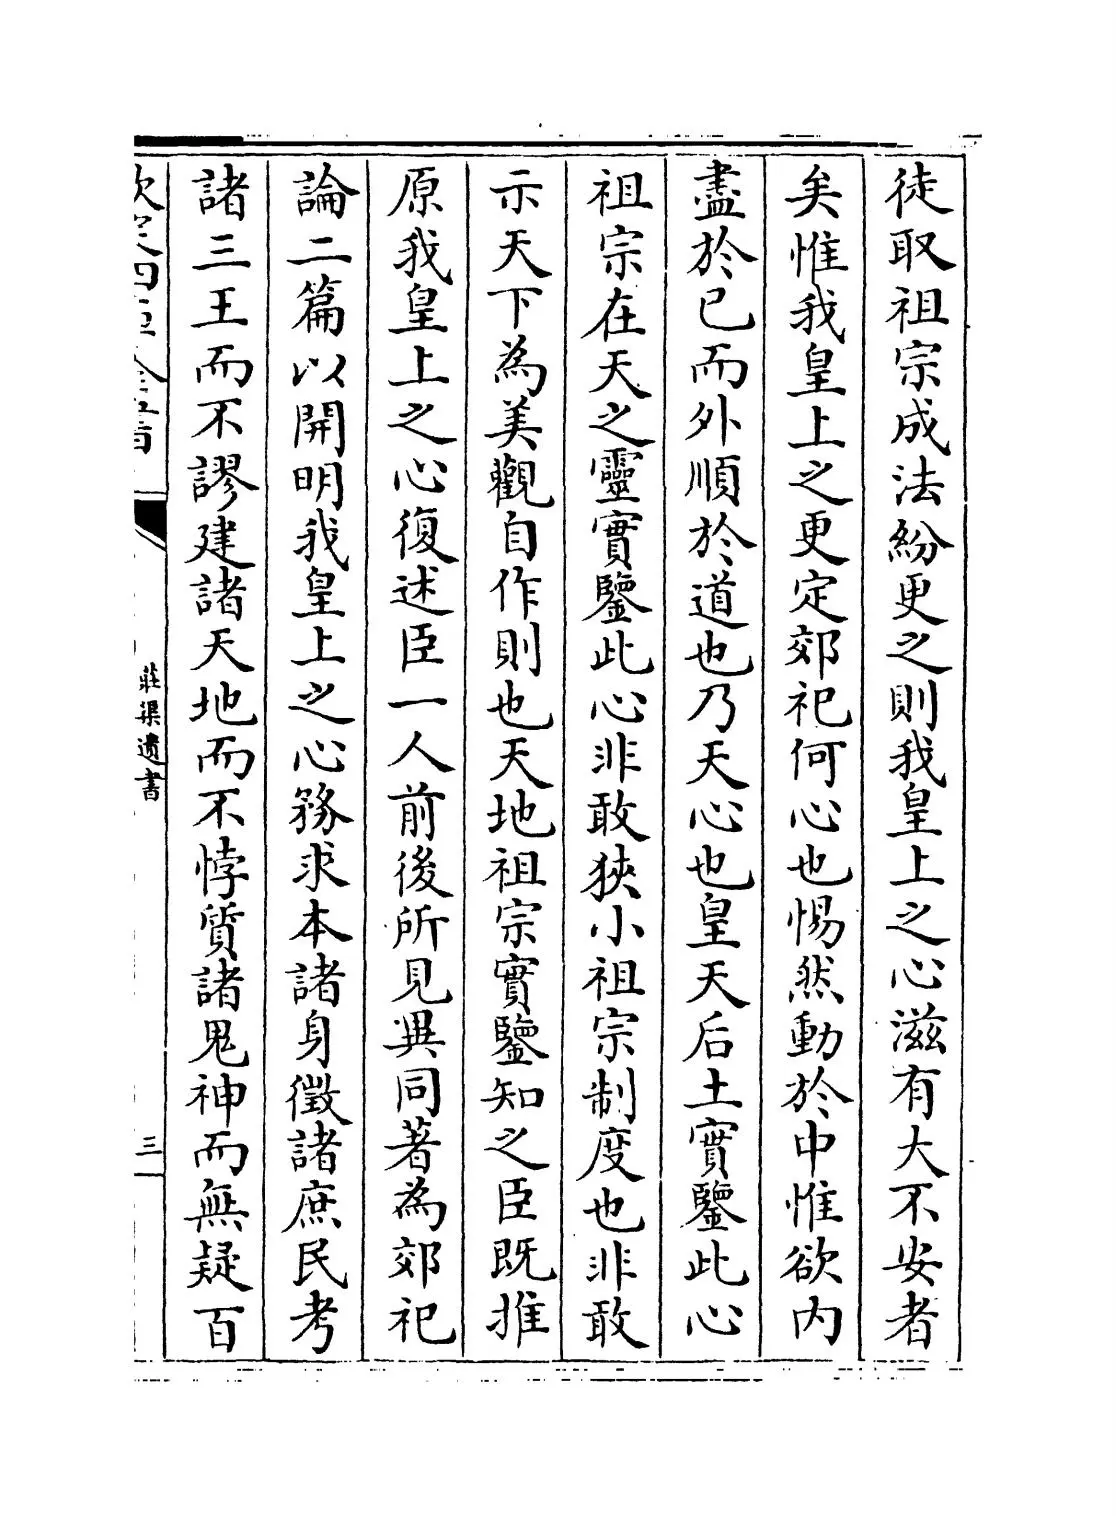 徒取祖宗成法紛更之則我皇上之心滋有大不安者
矣惟我皇上之更定郊祀何心也惕然動於中惟欲内
盡於已而外順於道也乃天心也皇天后土實鑒此心
祖宗在天之靈實鑒此心非敢狹小祖宗制度也非敢
示天下為美觀自作則也天地祖宗實鑒知之臣既推
原我皇上之心復述臣一人前後所見異同著為郊祀
論二篇以開明我皇上之心務求本諸身徵諸庶民考
諸三王而不謬建諸天地而不悖質諸鬼神而無疑百
欽定四庫全書
莊渠遺書
三